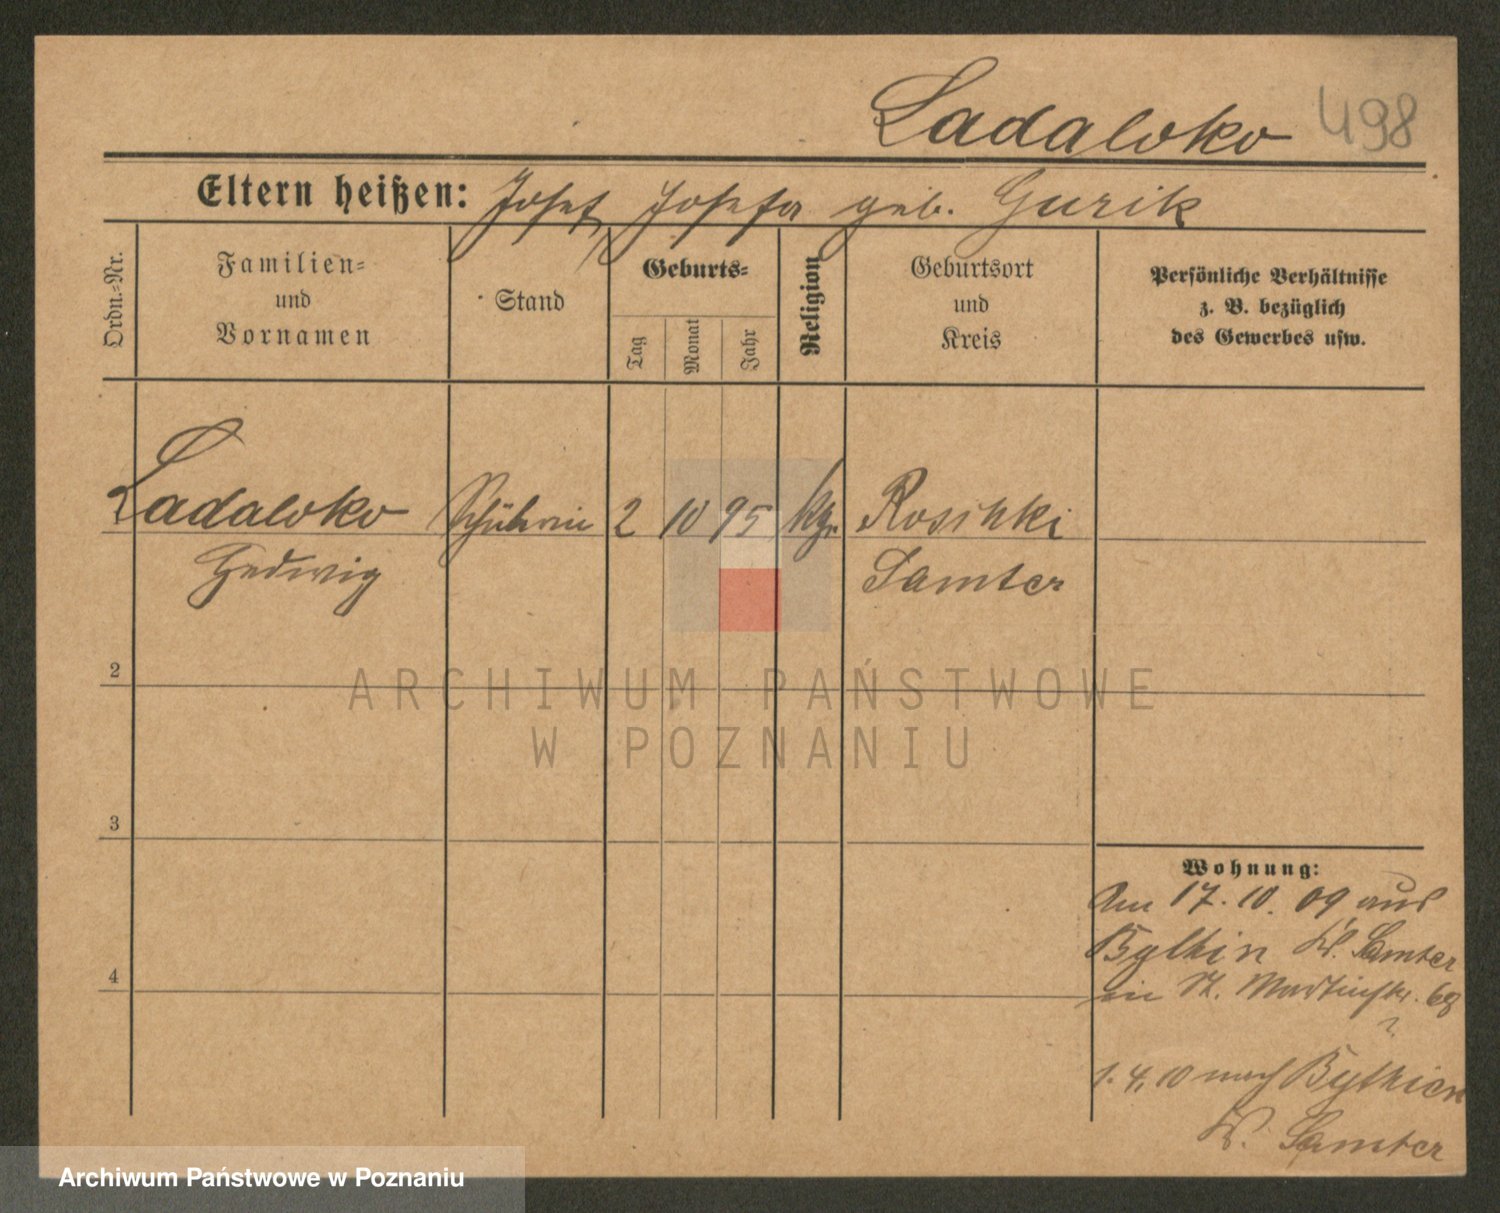 Ladaloko 498
Eltern heißen: Josef, Josefa geb. Gurik
Ordn.-Nr.
Familien-
und
Vornamen
Stand
Geburts-
Tag
Monat
Jahr
Religion
Geburtsort
und
Kreis
Persönliche Verhältnisse
z. B. bezüglich
des Gewerbes usw.
Ladaloko 2 10 95
Hedwig Samter
2
ARCHIWUM PAŃSTWOWE
W POZNANIU
3
Wohnung:
Am 17.10.09 aus
K. Samter
in St. Martinstr. 68
4
?
1.4.10 nach
K. Samter
Archiwum Państwowe w Poznaniu